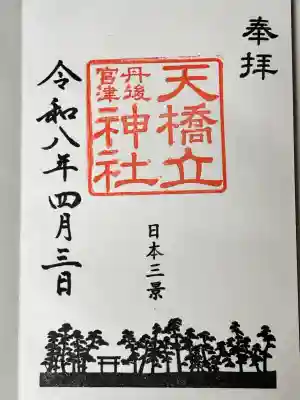 奉拝
天橋立
丹後
宮津
神社
日本三景
令和八年四月三日